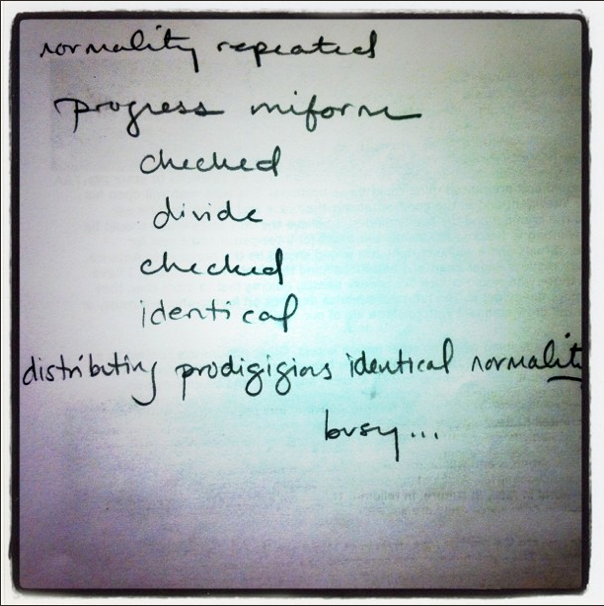 normality repeated
progress uniform
checked
divide
checked
identical
distributing prodigigious identical normality
busy...